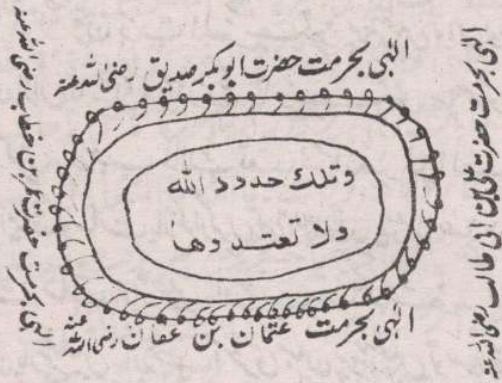 الٰہی بحرمت حضرت ابوبکر صدیق رضی اللہ عنہ
الٰہی بحرمت حضرت علی ابن ابی طالب رضی اللہ عنہ
وتلك حدود الله
ولا تعتدوها
الٰہی بحرمت عثمان بن عفان رضی اللہ عنہ
الٰہی بحرمت حضرت عمر بن خطاب رضی اللہ عنہ